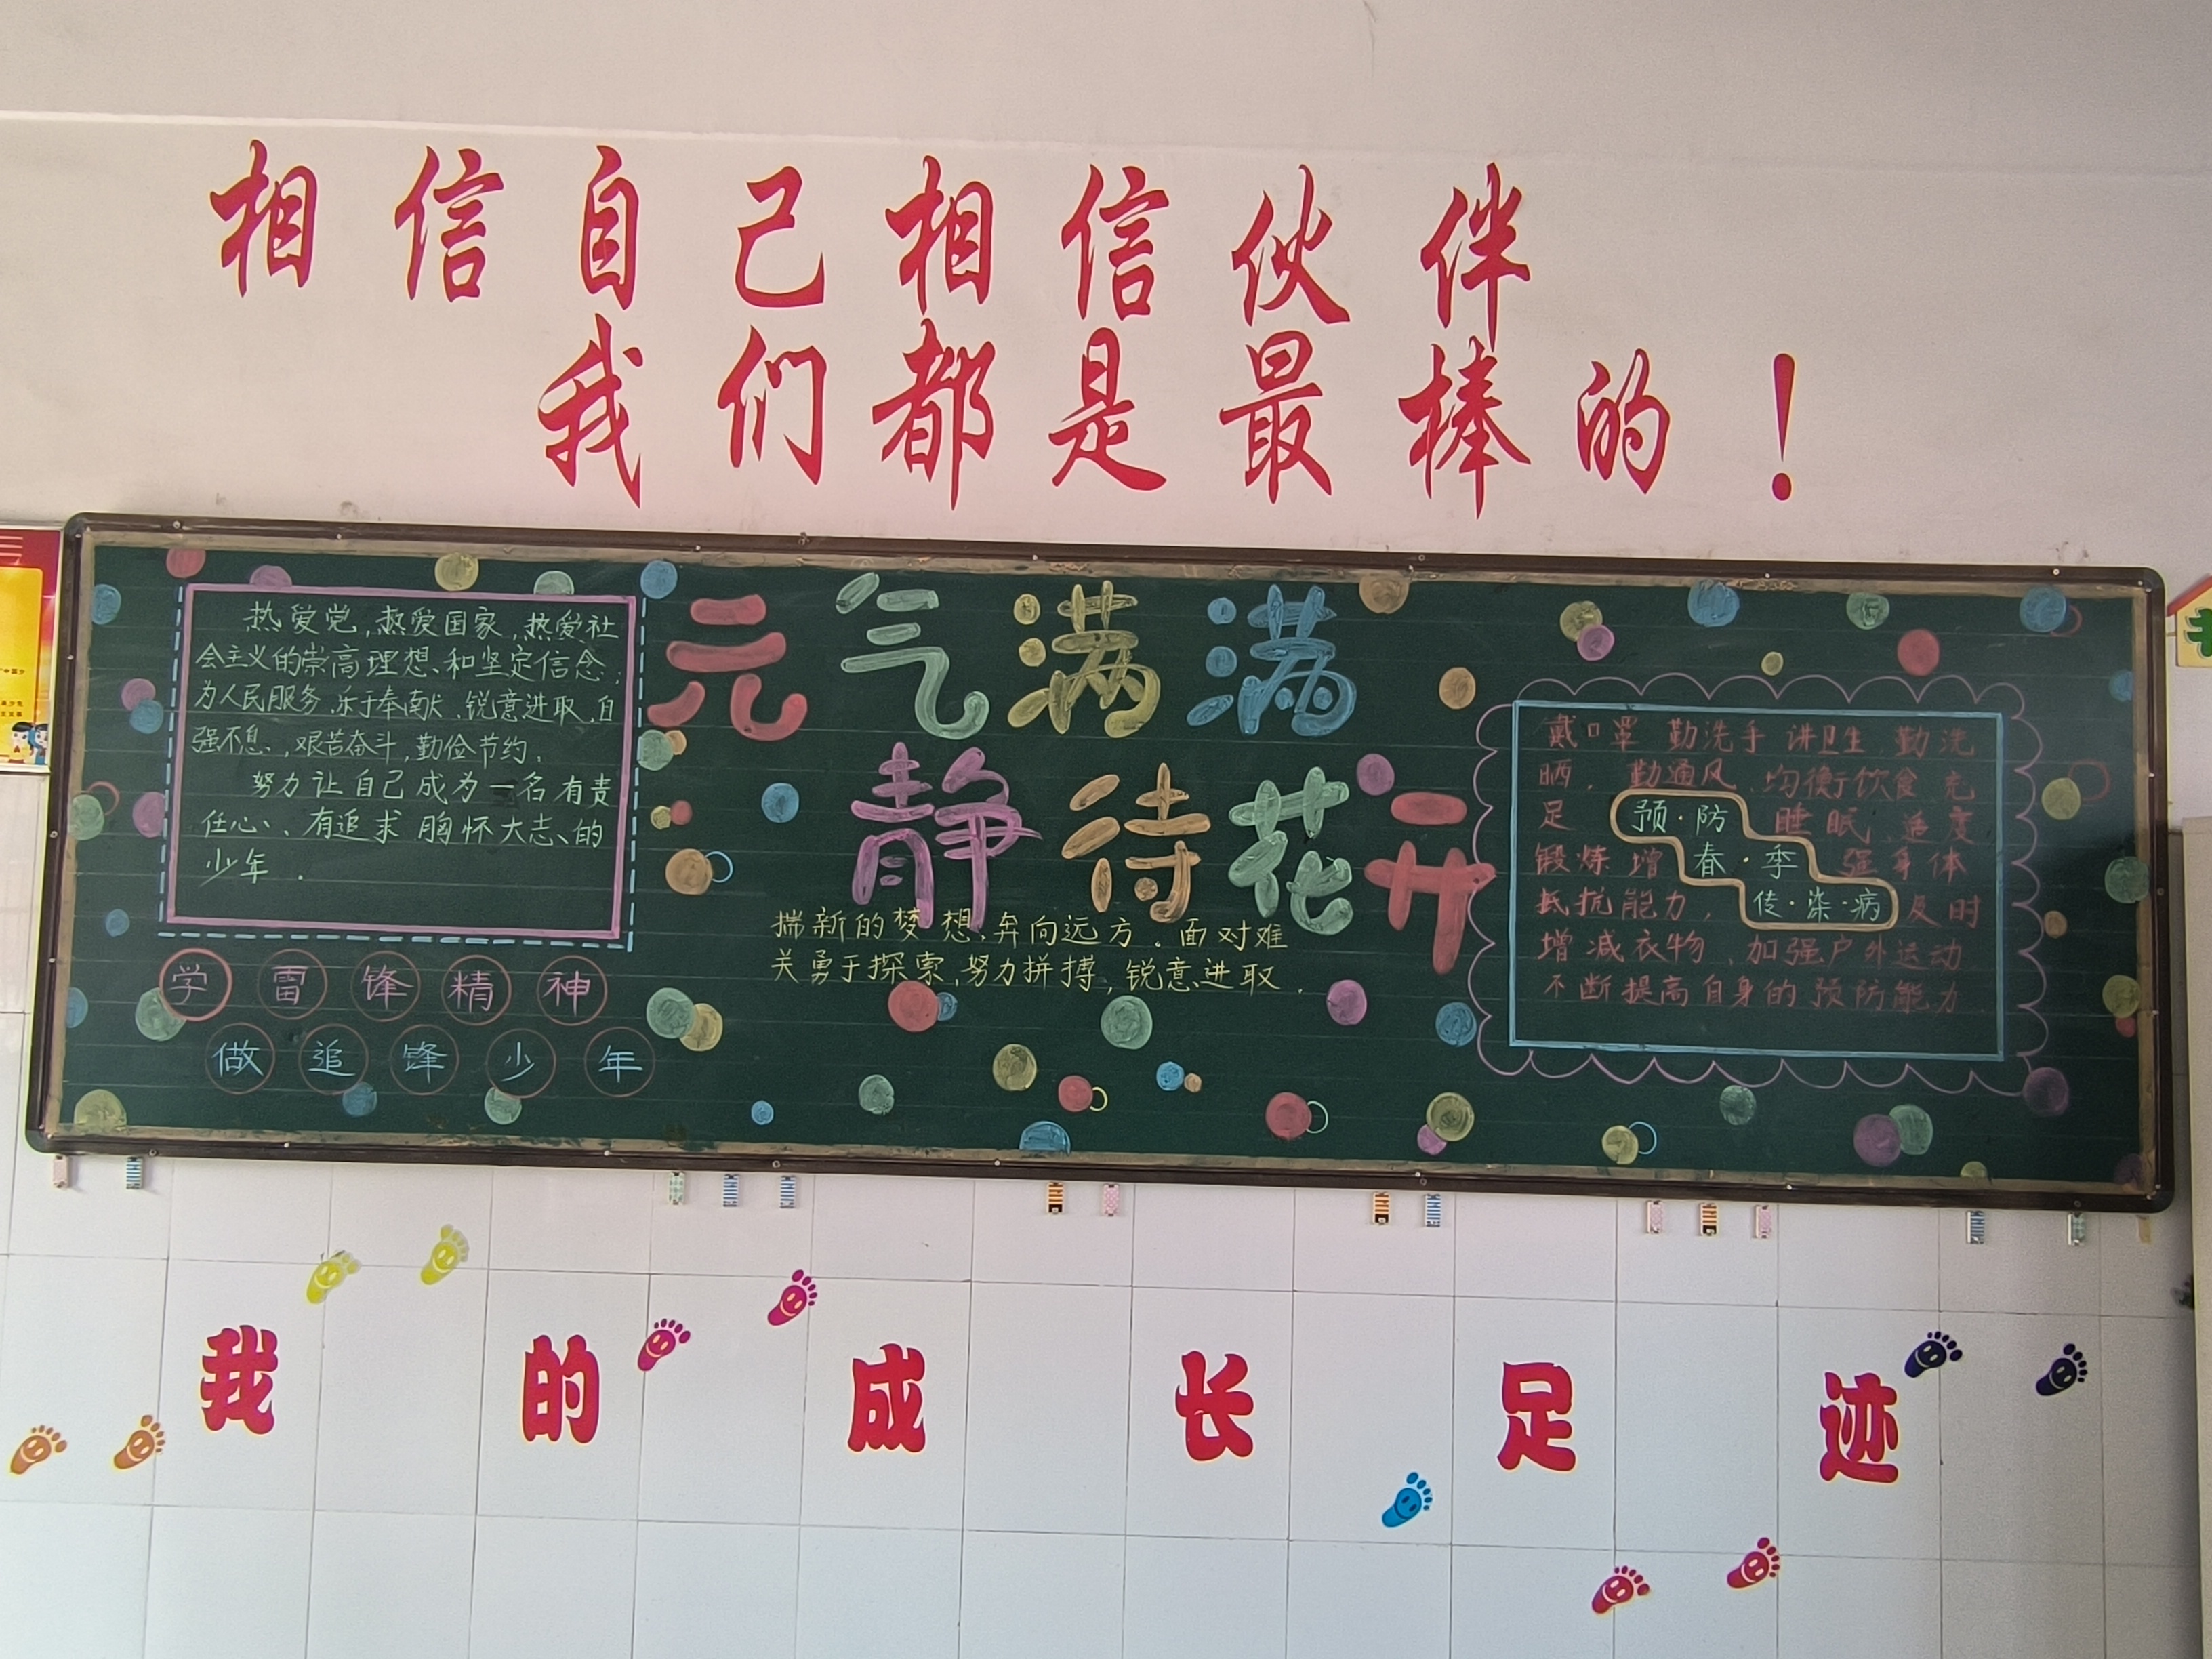 相信自己相信伙伴
我们都是最棒的！
热爱党，热爱国家，热爱社
会主义的崇高理想、和坚定信念；
为人民服务、乐于奉献、锐意进取、自
强不息、艰苦奋斗，勤俭节约．
努力让自己成为一名有责
任心、有追求胸怀大志、的
少年．
学雷锋精神
做追锋少年
元气满满
静待花开
揣新的梦想，奔向远方．面对难
关勇于探索，努力拼搏，锐意进取．
戴口罩 勤洗手 讲卫生 勤洗
晒， 勤通风、均衡饮食 充
足 睡眠、适度
锻炼 增 强身体
抵抗能力， 及时
增减衣物，加强户外运动
不断提高自身的预防能力．
预·防
春·季
传·染·病
我的成长足迹